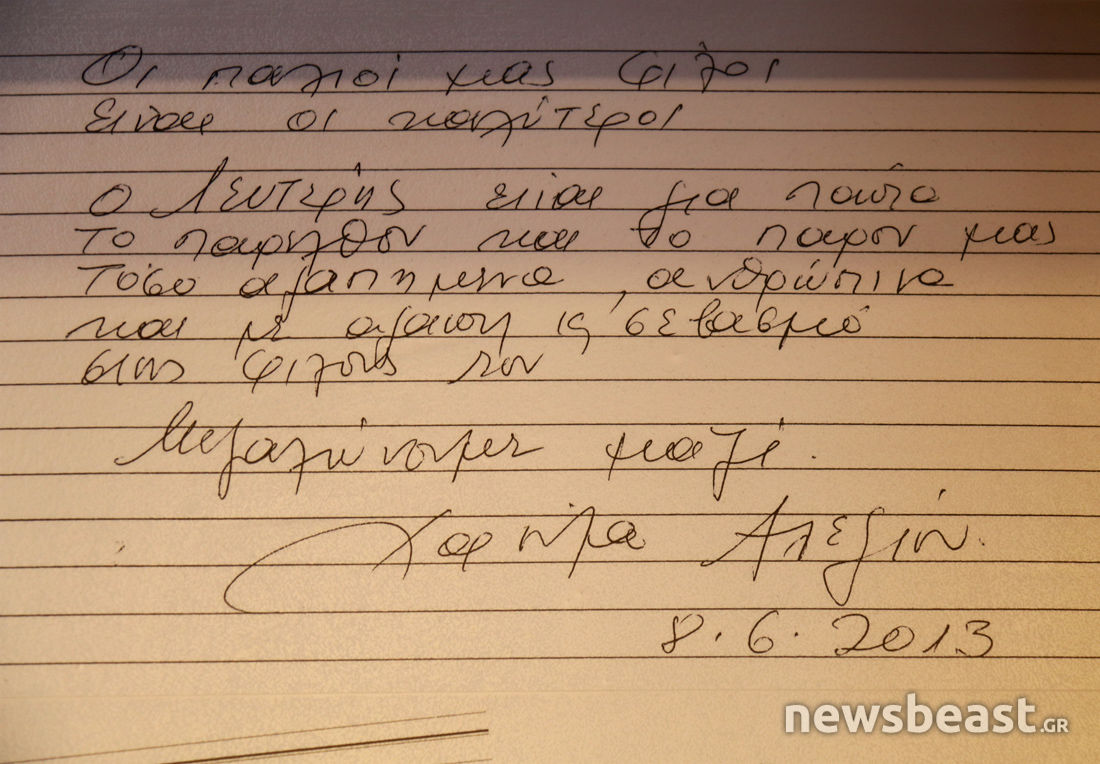 Οι παλιοί μας φίλοι
είναι οι καλύτεροι
ο Λευτέρης είναι για πάντα
το παρελθόν και το παρον μας
τόσο αγαπημένα, ανθρώπινα
και με αγάπη κ' σεβασμό
στους φίλους του
Μεγαλώνουμε μαζί.
Χαρούλα Αλεξίου.
8.6.2013
newsbeast.GR